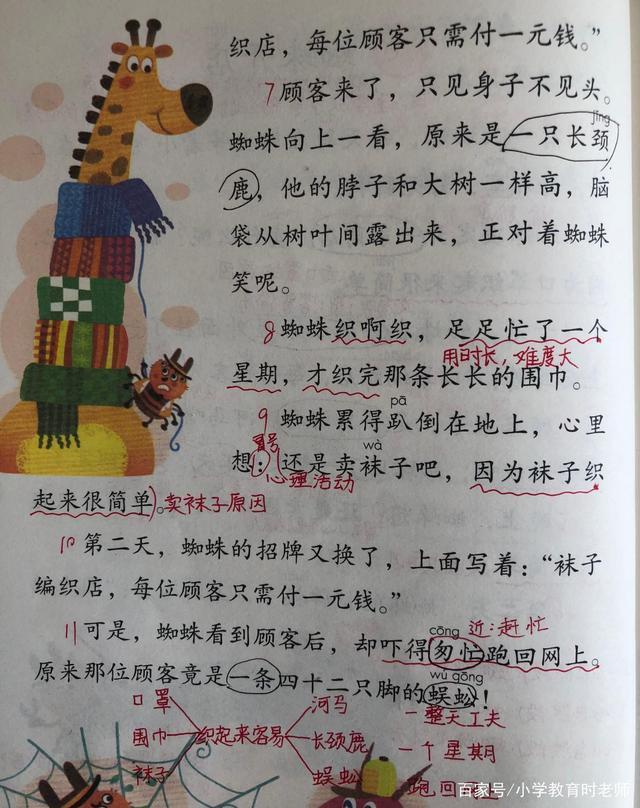 织店，每位顾客只需付一元钱。”
7顾客来了，只见身子不见头。
jǐng
蜘蛛向上一看，原来是一只长颈
鹿，他的脖子和大树一样高，脑
袋从树叶间露出来，正对着蜘蛛
笑呢。
8蜘蛛织啊织，足足忙了一个
用时长，难度大
星期，才织完那条长长的围巾。
pā
9蜘蛛累得趴倒在地上，心里
冒号 wà
想：还是卖袜子吧，因为袜子织
心理活动
起来很简单。卖袜子原因
10第二天，蜘蛛的招牌又换了，上面写着：“袜子
编织店，每位顾客只需付一元钱。”
cōng 近：赶忙
11可是，蜘蛛看到顾客后，却吓得匆忙跑回网上。
wú gōng
原来那位顾客竟是一条四十二只脚的蜈蚣！
口罩 河马 一整天工夫
围巾 织起来容易 长颈鹿 一个星期
袜子 蜈蚣 跑回
百家号/小学教育时老师